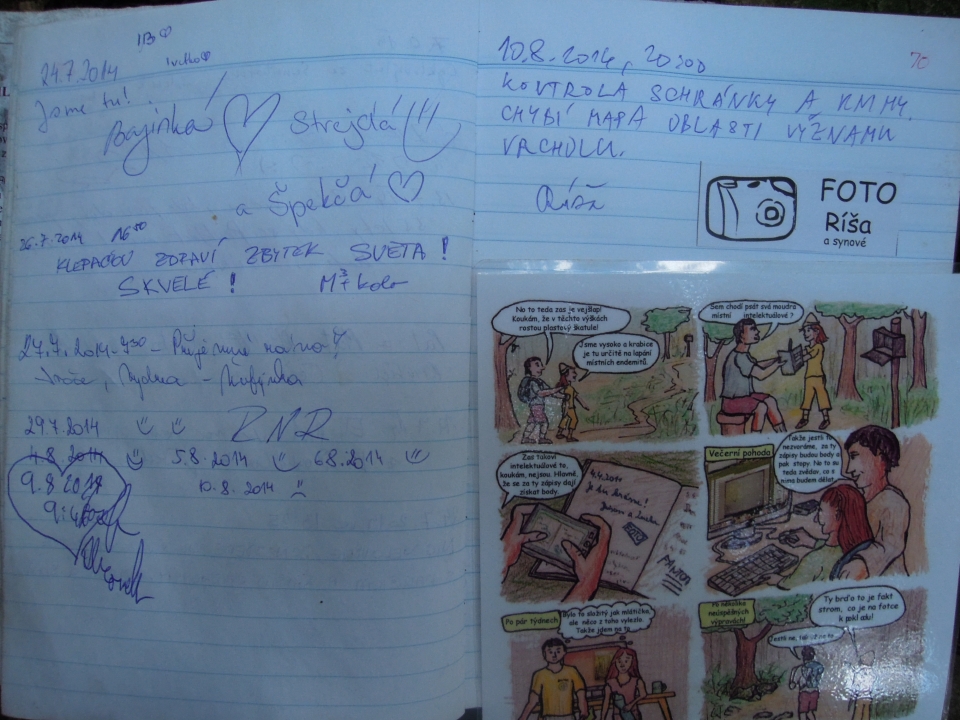 24.7.2014
Jsme tu!
Strejdá
a Špekčá
26.7.2014 16⁰⁰
KLEPAČOV ZDRAVÍ ZBYTEK SVETA!
SKVELÉ!
29.7.2014
RNR
4.8.2014 5.8.2014 6.8.2014
10.8.2014
9.8.2014
10.8.2014, 20:00
KONTROLA SCHRÁNKY A KNIHY.
CHYBÍ MAPA OBLASTI VÝZNAMU
VRCHOLU.
Ríša
70
FOTO
Ríša
a synové
No to teda zas je vejšlap!
Koukám, že v těchto výškách
rostou plastový škatule!
Jsme vysoko a krabice
je tu určitě na lapání
místních endemitů.
Sem chodí psát svá moudra
místní intelektuálové?
Zas takoví
intelektuálové to,
koukám, nejsou. Hlavně,
že se za ty zápisy dají
získat body.
4.4.2011
Večerní pohoda
Takže jestli to
nezvoráme, za ty
zápisy budou body a
pak stopy. No to su
teda zvědav, co s
nima budem dělat.
Po pár týdnech
Bylo to složitý jak mlátička,
ale něco z toho vylezlo.
Takže jdem na to
Po několika
neúspěšných
výpravách!
Ty brďo to je fakt
strom, co je na fotce
k pokladu!